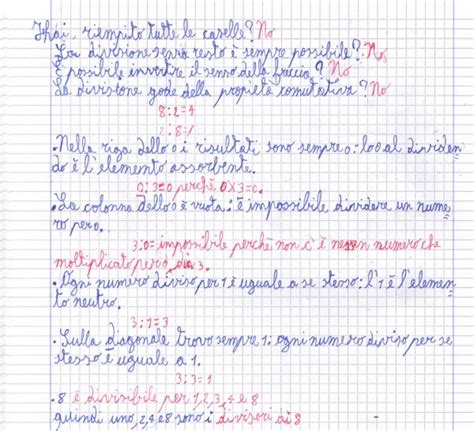 Hai, riempito tutte le caselle? No
La divisione senza resto è sempre possibile? No
È possibile invertire il senso della freccia? No
La divisione gode della propietà comutativa? No
8:2=4
2:8=/
•Nella riga dello 0 i risultati sono sempre 0: lo 0 al dividen
do è l'elemento assorbente.
0:3=0 perché 0x3=0.
•La colonna dello 0 è vuota: è impossibile dividere un nume
ro per 0.
3:0= impossibile perché non c'è nessun numero che
moltiplicato per 0 dia 3.
• Ogni numero diviso per 1 è uguale a se stesso: l'1 è l'elemen
to neutro.
3:1=3
• Sulla diagonale trovo sempre 1: ogni numero diviso per se
stesso è uguale a 1.
3:3=1
•8 è divisibile per 1,2,3,4 e 8
quindi uno,2,4 e 8 sono i divisori di 8